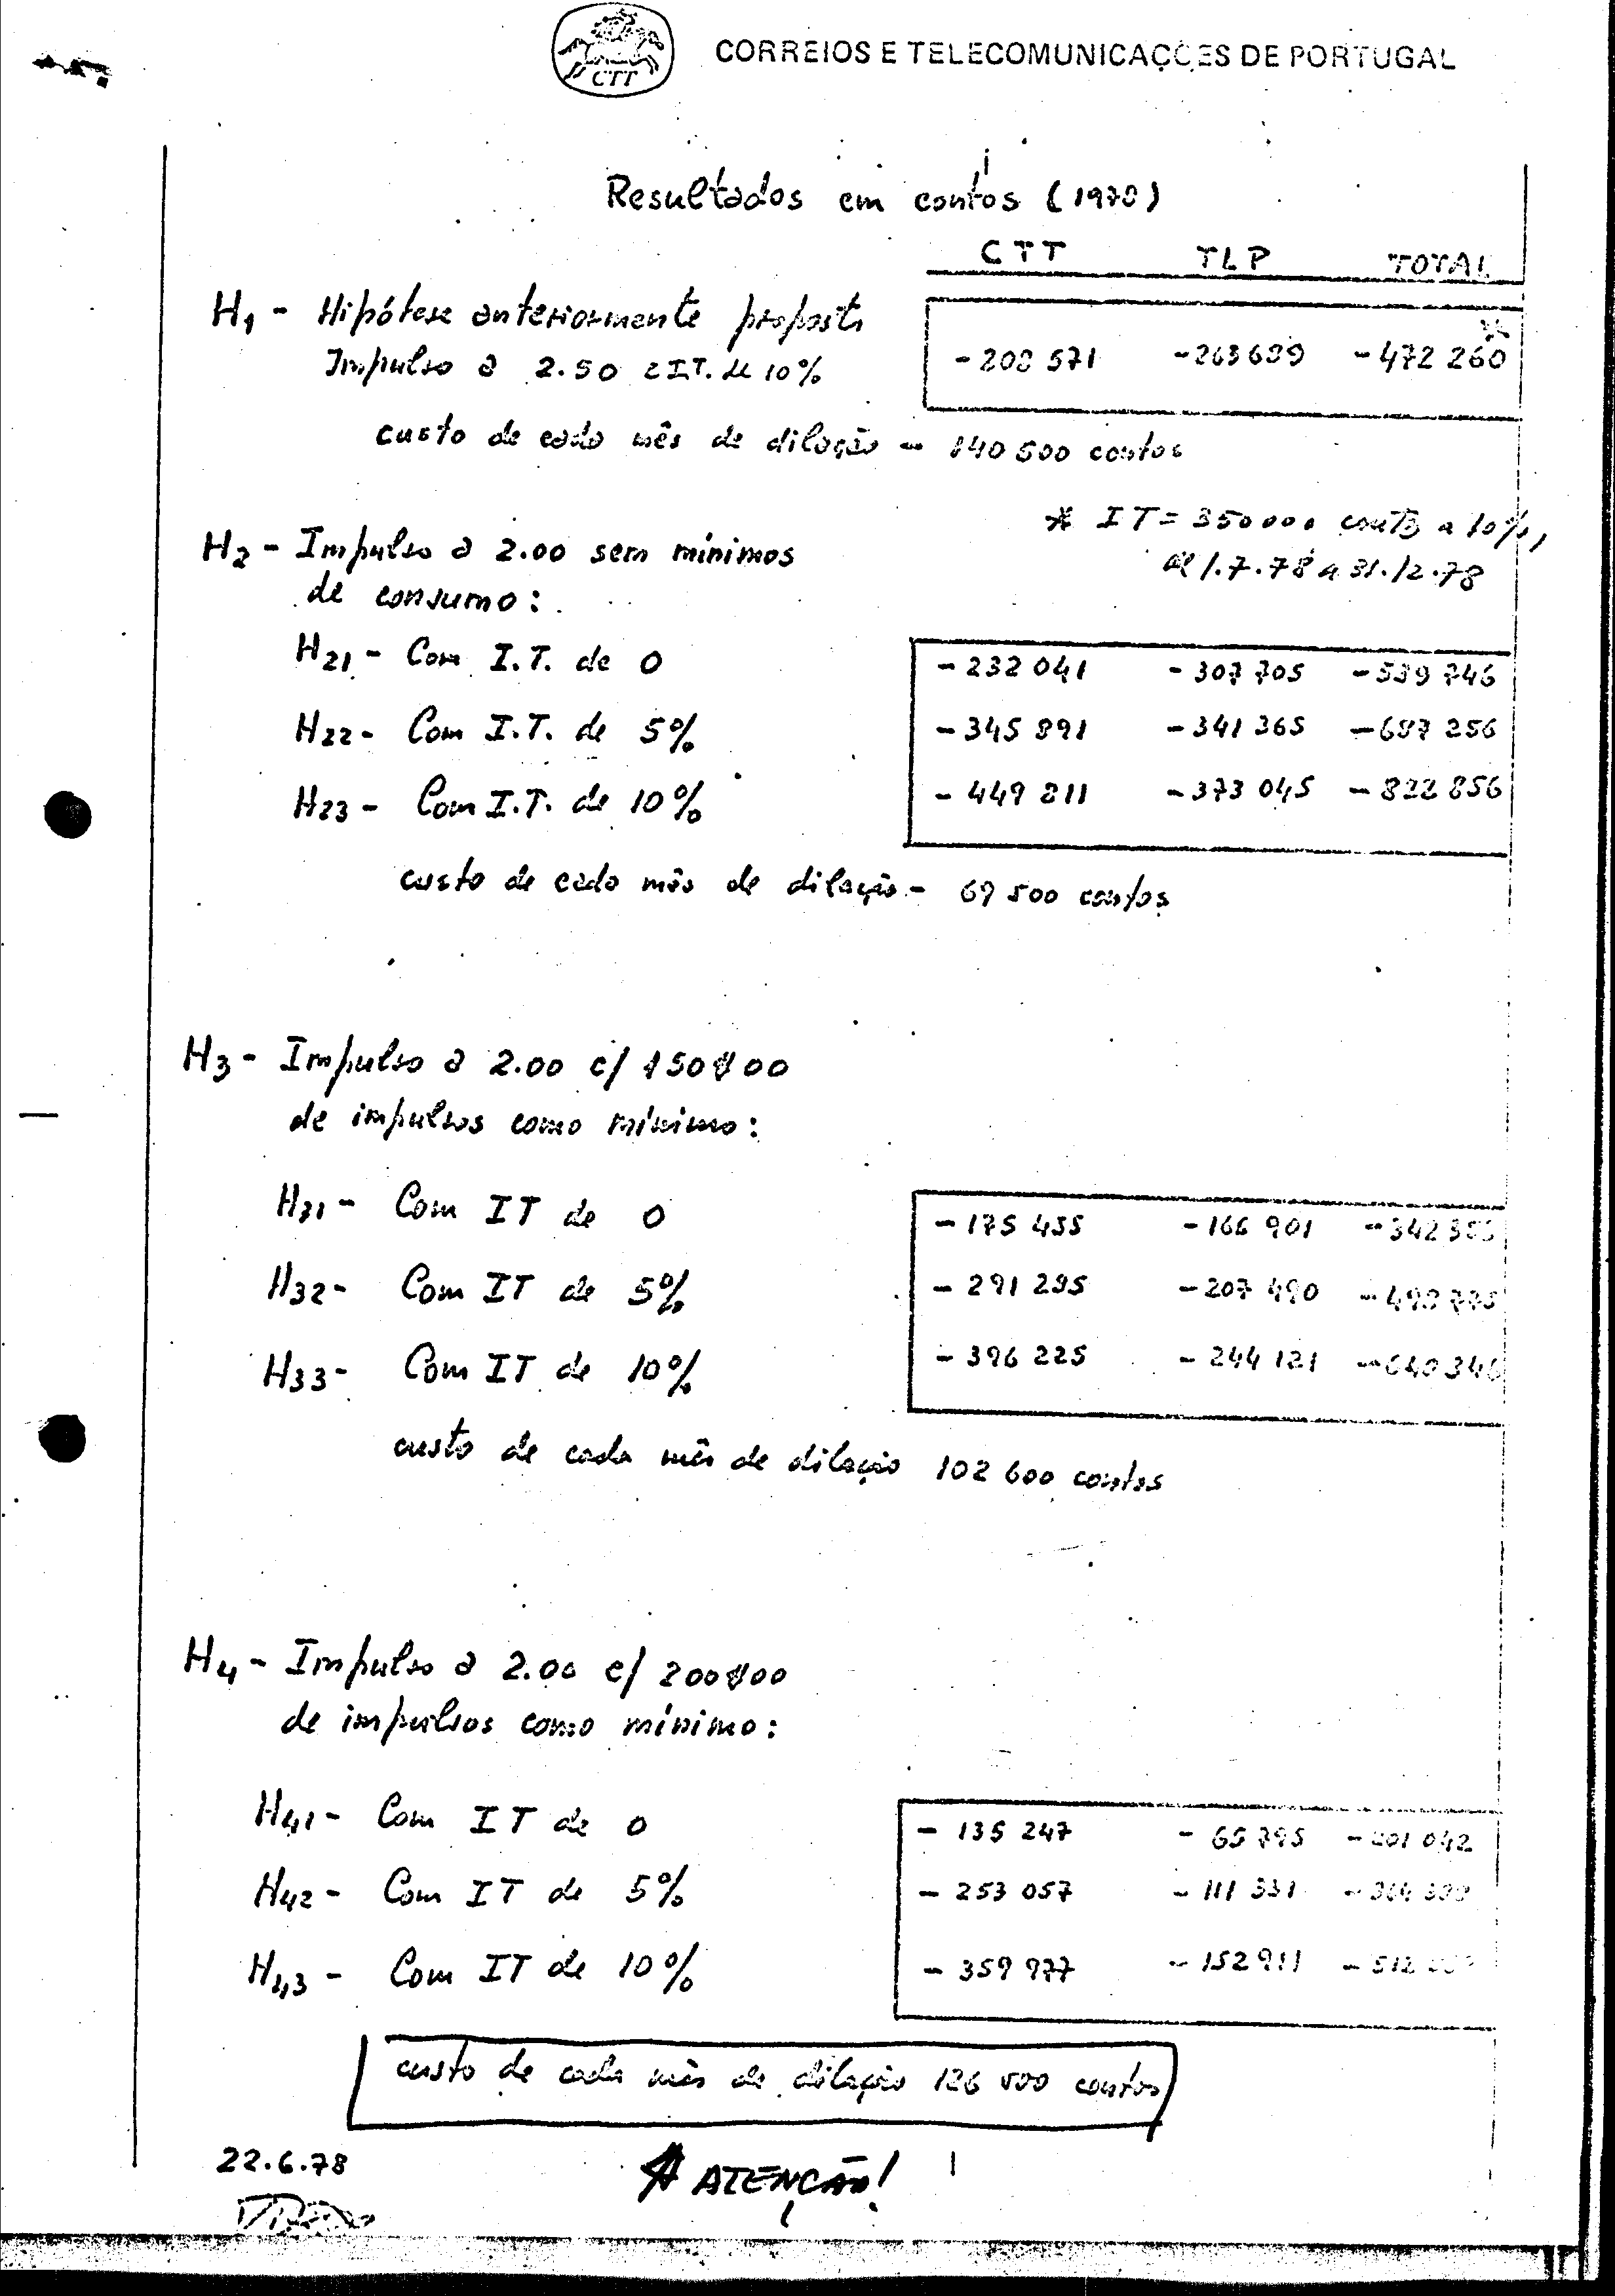 CTT
CORREIOS E TELECOMUNICAÇÕES DE PORTUGAL
Resultados em contos (1978)
CTT TLP TOTAL
H1 - Hipótese anteriormente proposta
Impulso a 2.50 e I.T. de 10% - 208 571 - 263 689 - 472 260 *
custo de cada mês de dilação - 140 500 contos
* IT = 350000 contos a 10%,
de 1.7.78 a 31.12.78
H2 - Impulso a 2.00 sem mínimos
de consumo:
H21 - Com I.T. de 0 - 232 041 - 307 705 - 539 746
H22 - Com I.T. de 5% - 345 891 - 341 365 - 687 256
H23 - Com I.T. de 10% - 449 811 - 373 045 - 822 856
custo de cada mês de dilação - 69 500 contos
H3 - Impulso a 2.00 c/ 150$00
de impulsos como mínimo:
H31 - Com IT de 0 - 175 455 - 166 901 - 342 356
H32 - Com IT de 5% - 291 295 - 207 490
H33 - Com IT de 10% - 396 225 - 244 121 - 640 346
custo de cada mês de dilação 102 600 contos
H4 - Impulso a 2.00 c/ 200$00
de impulsos como mínimo:
H41 - Com IT de 0 - 135 247 - 65 795 - 201 042
H42 - Com IT de 5% - 253 057 - 111 331
H43 - Com IT de 10% - 359 977 - 152 911
custo de cada mês de dilação 126 500 contos
22.6.78
ATENÇÃO!